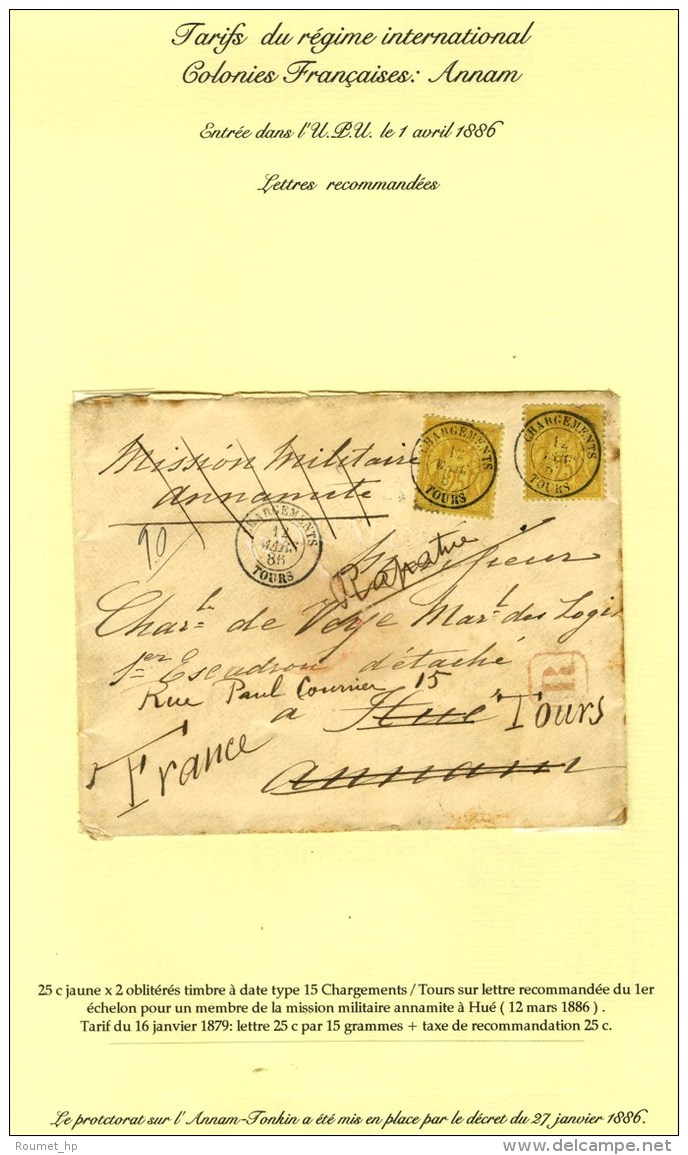 Tarifs du régime international
Colonies Françaises: Annam
Entrée dans l'U.P.U. le 1 avril 1886
Lettres recommandées
CHARGEMENTS
12
TOURS
CHARGEMENTS
12
TOURS
Mission Militaire
annamite
90
CHARGEMENTS
12
MARS
86
TOURS
Rapatrié
Monsieur
Charl. de Mar. des Logis
1er Escadron détaché
Rue Paul Courrier 15
R
a Hué Tours
France
annam
25 c jaune x 2 oblitérés timbre à date type 15 Chargements / Tours sur lettre recommandée du 1er
échelon pour un membre de la mission militaire annamite à Hué ( 12 mars 1886 ) .
Tarif du 16 janvier 1879: lettre 25 c par 15 grammes + taxe de recommandation 25 c.
Le protctorat sur l'Annam-Tonkin a été mis en place par le décret du 27 janvier 1886.
Roumet_hp
delcampe.net